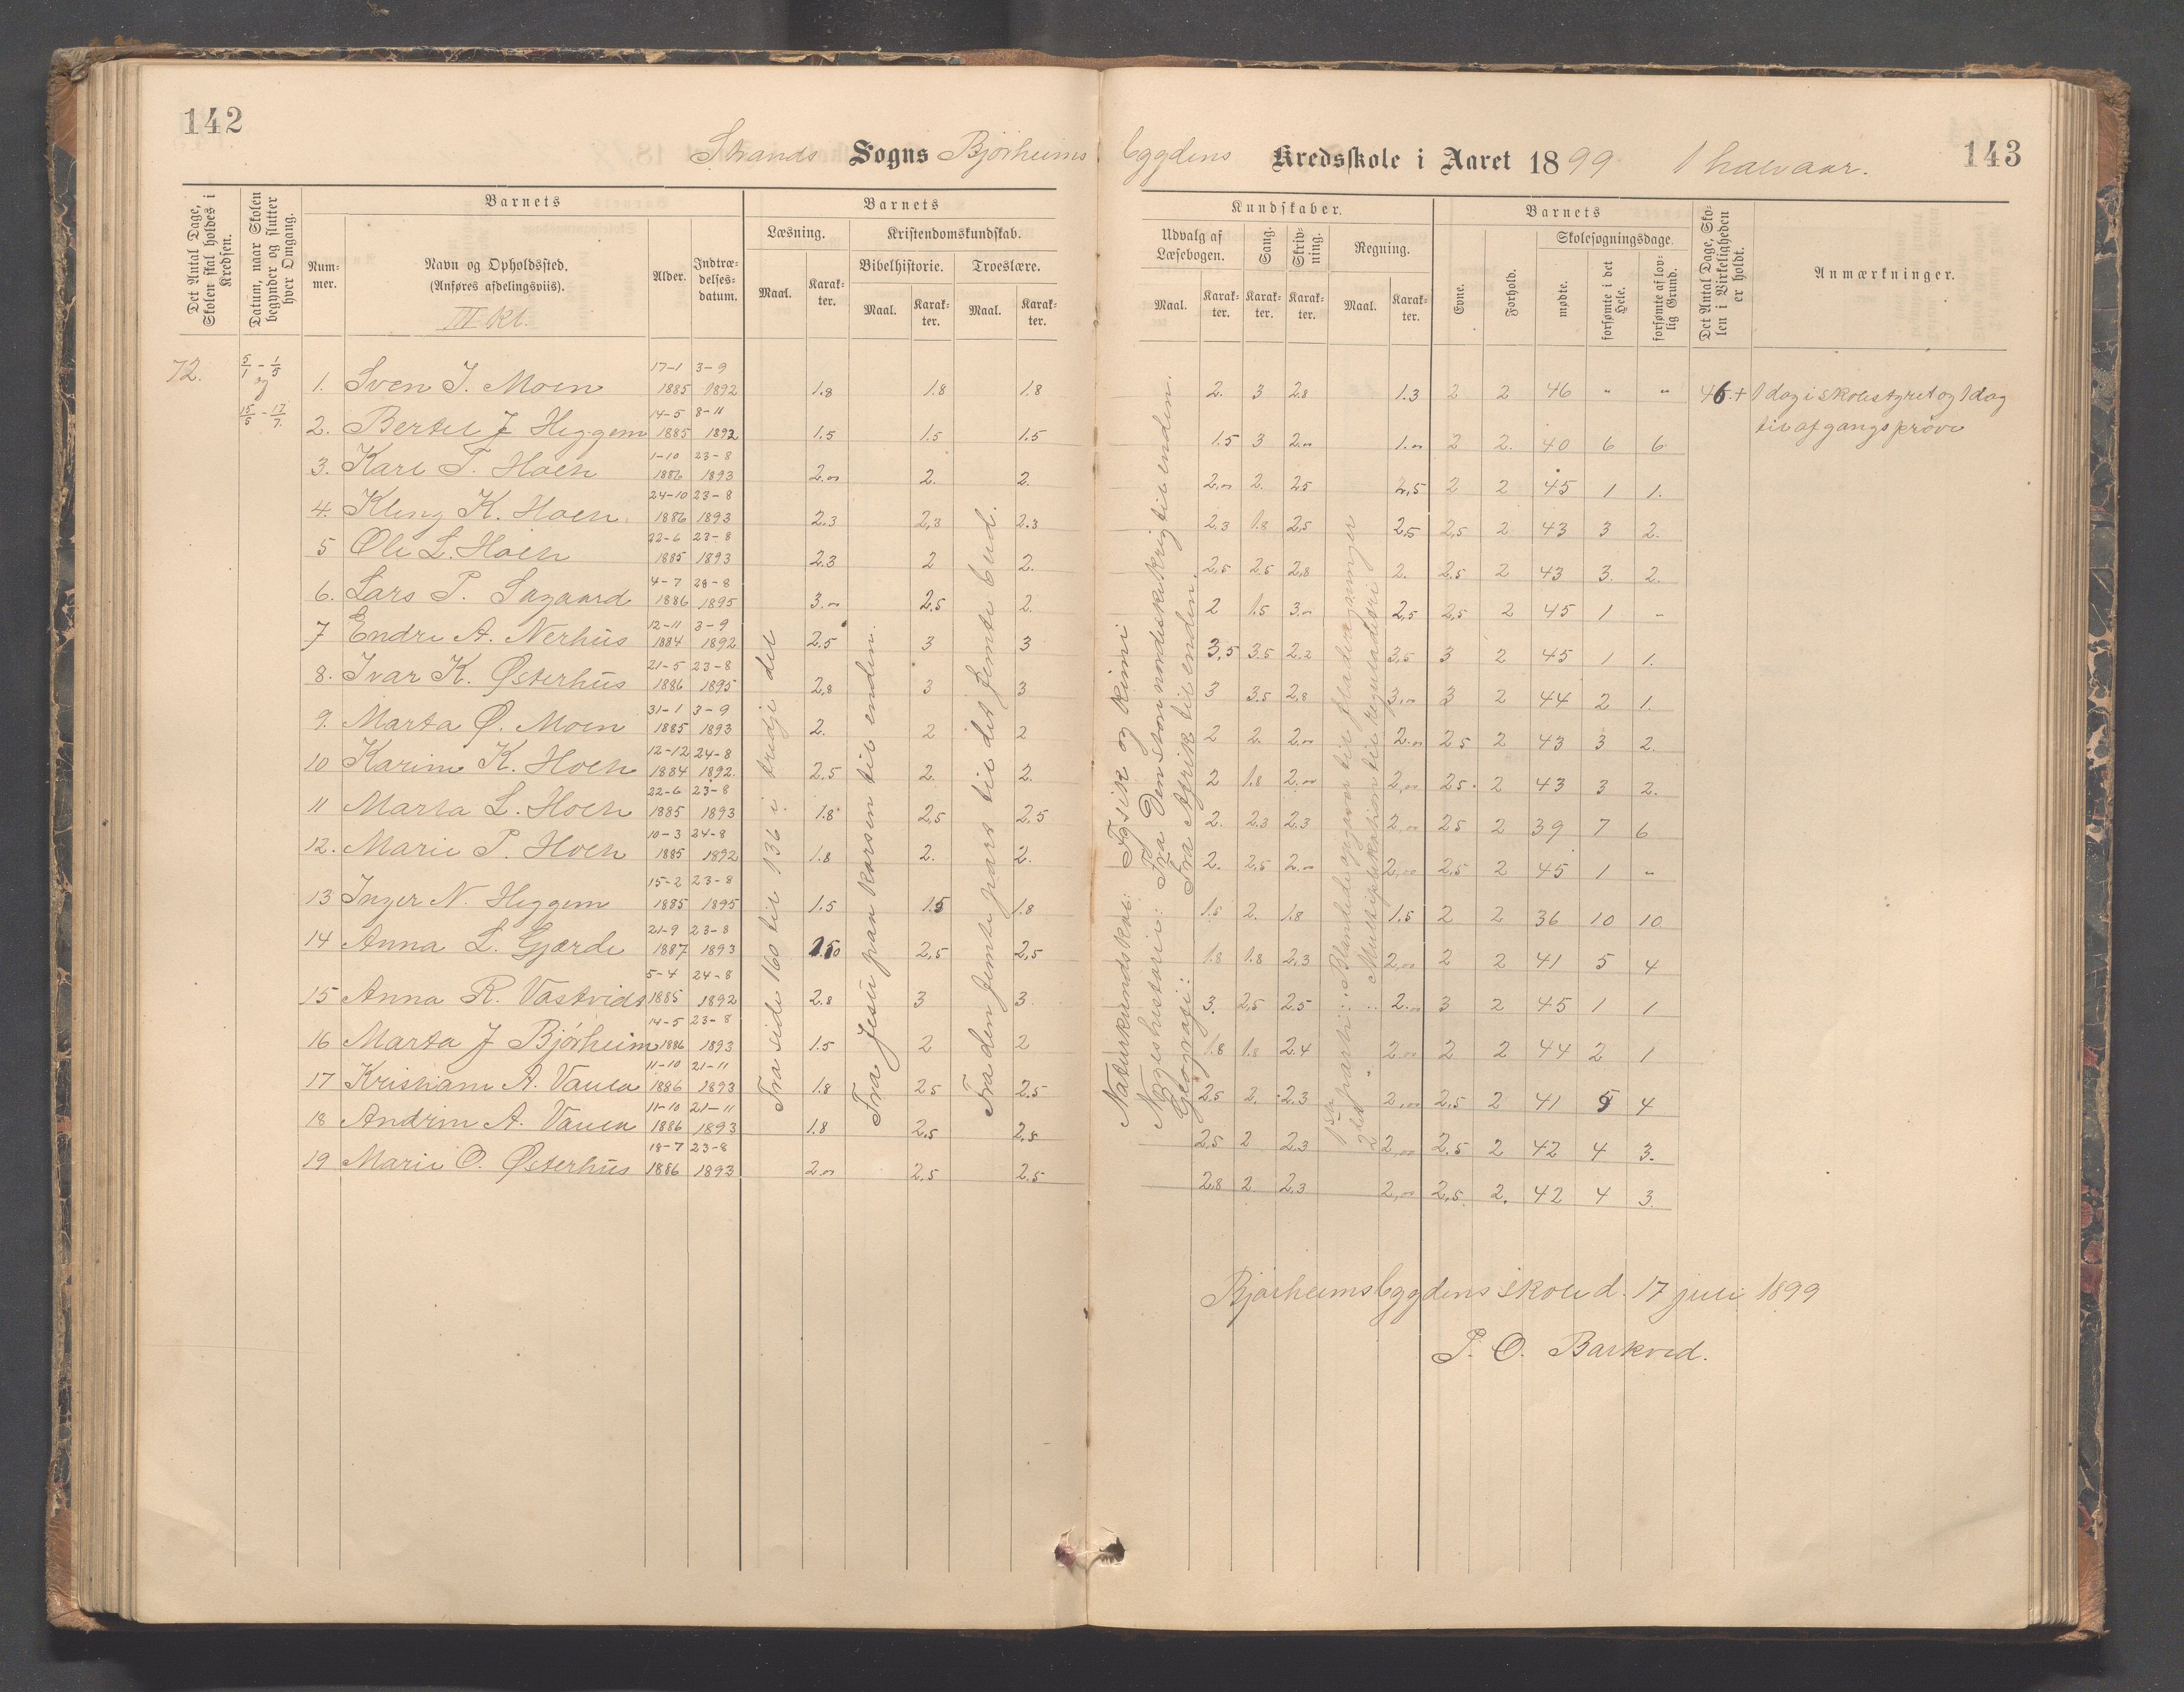 142
Strands Sogns Bjørheims
Det Antal Dage, Skolen skal holdes i Kredsen.
Datum, naar Skolen begynder og slutter hver Omgang.
Barnets
Barnets
Num-mer.
Navn og Opholdssted. (Anføres afdelingsviis).
III kl.
Alder.
Indtræ-delses-datum.
Læsning.
Kristendomskundskab.
Bibelhistorie.
Troeslære.
Maal. Karak-ter. Maal. Karak-ter. Maal. Karak-ter.
72. 5/1 - 1/5 og 15/5 - 17/7.
1. Sven I. Moen 17-1 1885 3-9 1892 1.8 1.8 1.8
2. Bertel J Heggem 14-5 1885 8-11 1892 1.5 1.5 1.5
3. Karl T. Hoen 1-10 1886 23-8 1893 2.00 2. 2.
4. Kleng K. Hoen 24-10 1886 23-8 1893 2.3 2,3 2.3
5 Ole L. Hoen 22-6 1885 23-8 1893 2.3 2 2.
6. Lars P. Sagaard 4-7 1886 28-8 1895 3.00 2.5 2.
7 Endre A. Nerhus 12-11 1884 3-9 1892 2.5 3 3
8. Ivar K. Østerhus 21-5 1886 23-8 1895 2,8 3 3
9. Marta Ø. Moen 31-1 1885 3-9 1893 2. 2 2
10 Karine K. Hoen 12-12 1884 24-8 1892. 2.5 2. 2.
11 Marta L. Hoen 22-6 1885 23-8 1893 1.8 2,5 2.5
12. Marie P. Hoen 10-3 1885 24-8 1892 1.8 2. 2.
13 Inger N. Heggem 15-2 1885 23-8 1895 1.5 1.5 1.8
14 Anna L. Gjærde 21-9 1887 23-8 1893 2,5 2,5
15 Anna R. Vastvidt 5-4 1885 24-8 1892 2.8 3 3.
16 Marta J Bjørheim 14-5 1886 23-8 1893 1.5 2 2
17 Kristiane A. Vaula 11-10 1886 21-11 1893 1.8 2.5 2.5
18 Andrine A. Vaula 11-10 1886 21-11 1893 1.8 2,5 2,5
19 Marie O. Østerhus 18-7 1886 23-8 1893 2.00 2.5 2.5
Fra side 160 til 136 i tredje del
Fra Jesus paa korsen til enden.
Fra den femte part til det femte bud.
143
bygdens Kredsskole i Aaret 1899 1 halvaar.
Kundskaber.
Barnets
Udvalg af Læsebogen.
Sang.
Skriv-ning.
Regning.
Evne.
Forhold.
Skolesøgningsdage.
mødte.
forsømte i det Hele.
forsømte af lov-lig Grund.
Det Antal Dage, Sko-len i Virkeligheden er holdt.
Anmærkninger.
Maal. Karak-ter. Karak-ter. Karak-ter. Maal. Karak-ter.
2. 3 2.8 1.3 2 2 46 " " 46+ 1 dag i skolestyret og 1 dag
til afgangsprøve
1.5 3 2.00 1.00 2 2. 40 6 6
2,00 2. 2.5 2,5 2 2 45 1 1.
2.3 1.8 2,5 2,5 2,5 2 43 3 2.
2,5 2.5 2,8 2. 2.5 2 43 3. 2.
2 1.5 3.00 2,5 2,5 2 45 1 -
3,5 3.5 2.2 3,5 3 2 45 1 1.
3 3.5 2.8 3,00 3 2 44 2 1.
2 2. 2.00 2.00 2 5 2 43 3 2.
2 1.8 2.00 2,00 2 5. 2 43 3 2.
2. 2.3 2.3 2,00 2 5 2 39 7 6
2. 2,5 2.00 2,00 2.5 2 45 1 "
1.5 2. 1.8 1.5 2 2 36 10 10
1.8 1.8 2.3 2,00 2 2 41 5 4
3. 2,5 2.5 2.00 3 2 45 1 1
1.8 1.8 2.4 2.00 2 2 44 2 1
2.5 2. 2.3 2,00 2,5 2 41 5 4
2.5 2 2.3 2,00 2.5 2 42 4 3.
2.8 2 2,3 2,00 2,5 2. 42 4 3.
Naturkundskab: Fysik og kemi
Norgeshistorie: Fra Den stornordiske krig til enden.
Geografi: Fra Afrik til enden.
Blandede opgaver til
Multiplikation til reguladetri
Bjørheimsbygdens skole d. 17 juli 1899
P. O. Barkved.